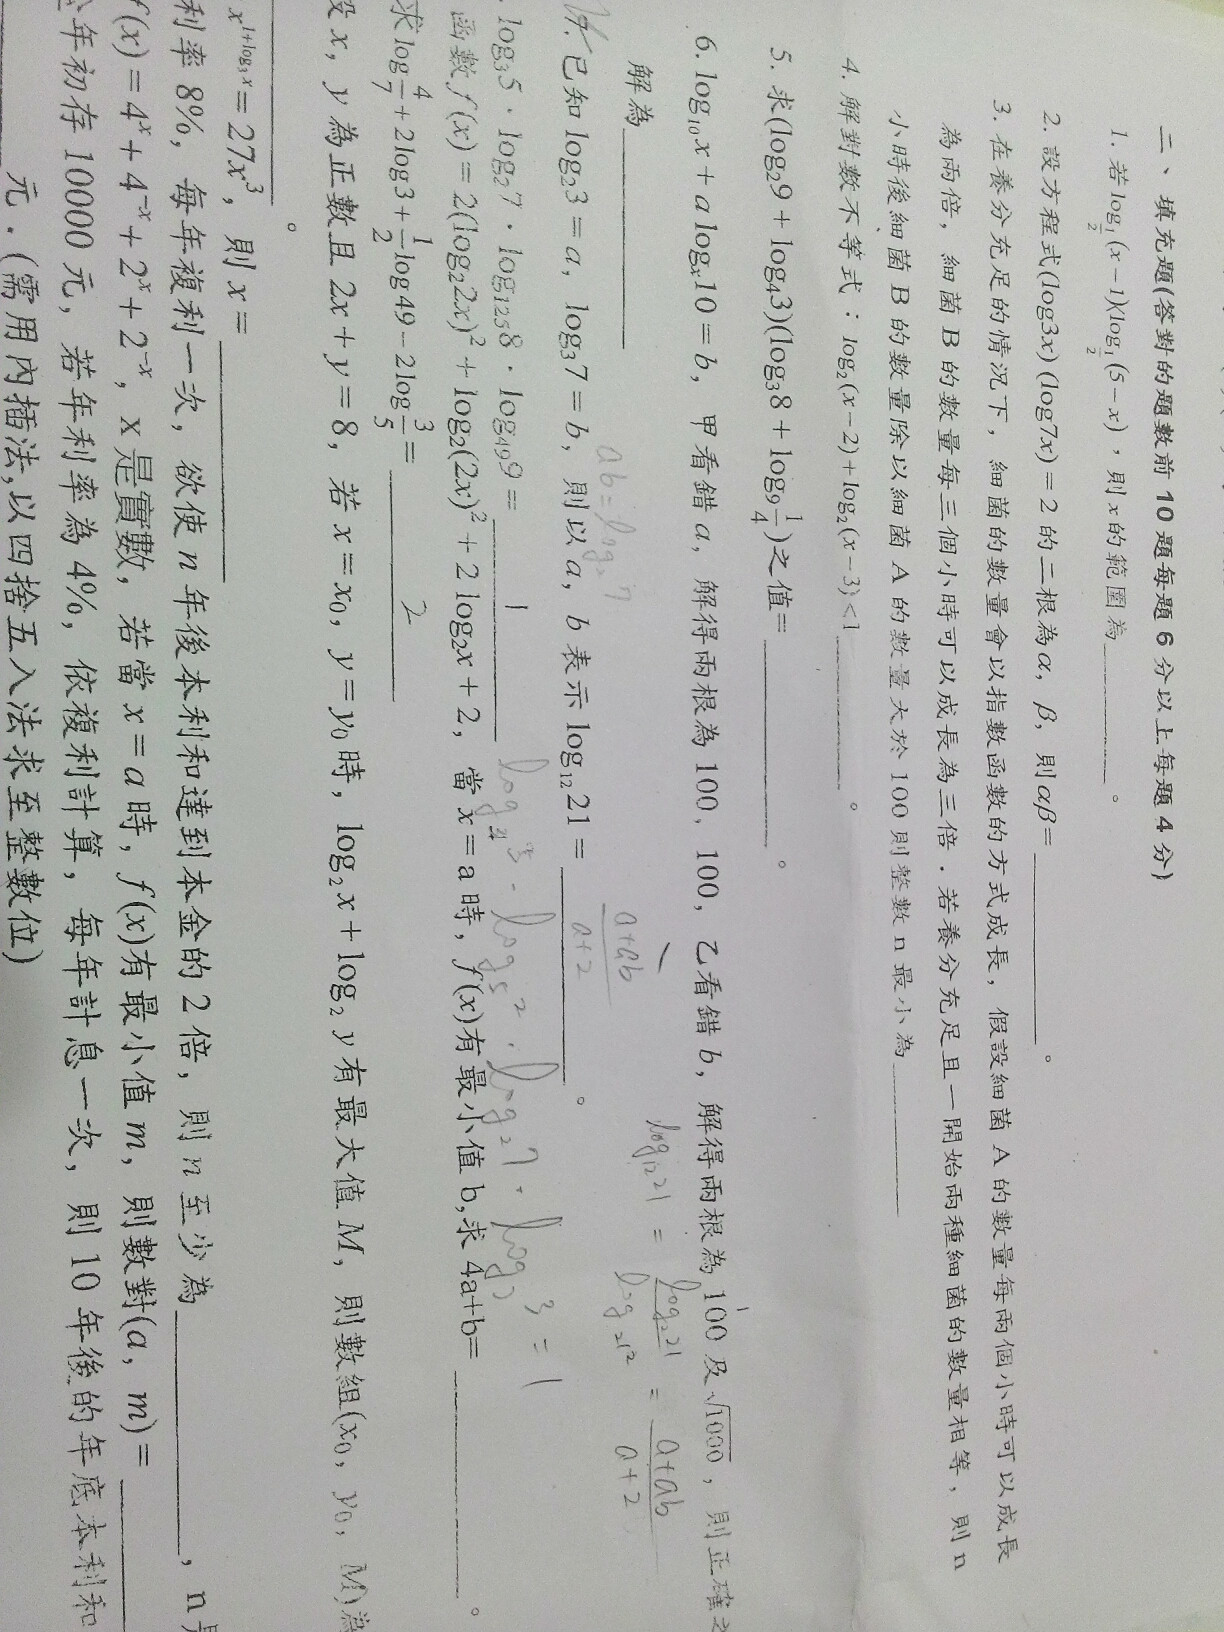 二、填充題(答對的題數前 10 題每題 6 分以上每題 4 分)
1. 若log_{1/2}(x-1)⟨log_{1/2}(5-x)，則x的範圍為________。
2. 設方程式(log3x)(log7x)=2 的二根為α, β, 則αβ=________。
3. 在養分充足的情況下, 細菌的數量會以指數函數的方式成長, 假設細菌 A 的數量每兩個小時可以成長
為兩倍, 細菌 B 的數量每三個小時可以成長為三倍. 若養分充足且一開始兩種細菌的數量相等, 則 n
小時後細菌 B 的數量除以細菌 A 的數量大於 100 則整數 n 最小為________
4. 解對數不等式：log₂(x-2)+log₂(x-3)<1________。
5. 求(log₂9+log₄3)(log₃8+log₉ 1/4)之值=________。
6. log₁₀x+a logₓ10=b, 甲看錯 a, 解得兩根為 100, 100, 乙看錯 b, 解得兩根為 100 及 √1000, 則正確之
解為________
ab=log₂7
a+ab
a+2
log₁₂21 = log₂21 / log₂12 = a+ab / a+2
7. 已知 log₂3=a, log₃7=b, 則以 a, b 表示 log₁₂21=________。
. log₃5·log₂7·log₁₂₅8·log₄₉9=1
函數 f(x)=2(log₂2x)²+log₂(2x)²+2 log₂x+2, 當 x=a 時, f(x)有最小值 b,求 4a+b=________。
求log 4/7+2log3+1/2 log49-2log 3/5= 2
設 x, y 為正數且 2x+y=8, 若 x=x₀, y=y₀時, log₂x+log₂y 有最大值 M, 則數組(x₀, y₀, M)為
________。
x^{1+log₃x}=27x³, 則 x=________
利率 8%, 每年複利一次, 欲使 n 年後本利和達到本金的 2 倍, 則 n 至少為________, n
f(x)=4ˣ+4⁻ˣ+2ˣ+2⁻ˣ, x 是實數, 若當 x=a 時, f(x)有最小值 m, 則數對(a, m)=________
年初存 10000 元, 若年利率為 4%, 依複利計算, 每年計息一次, 則 10 年後的年底本利和
元.(需用內插法,以四捨五入法求至整數位)